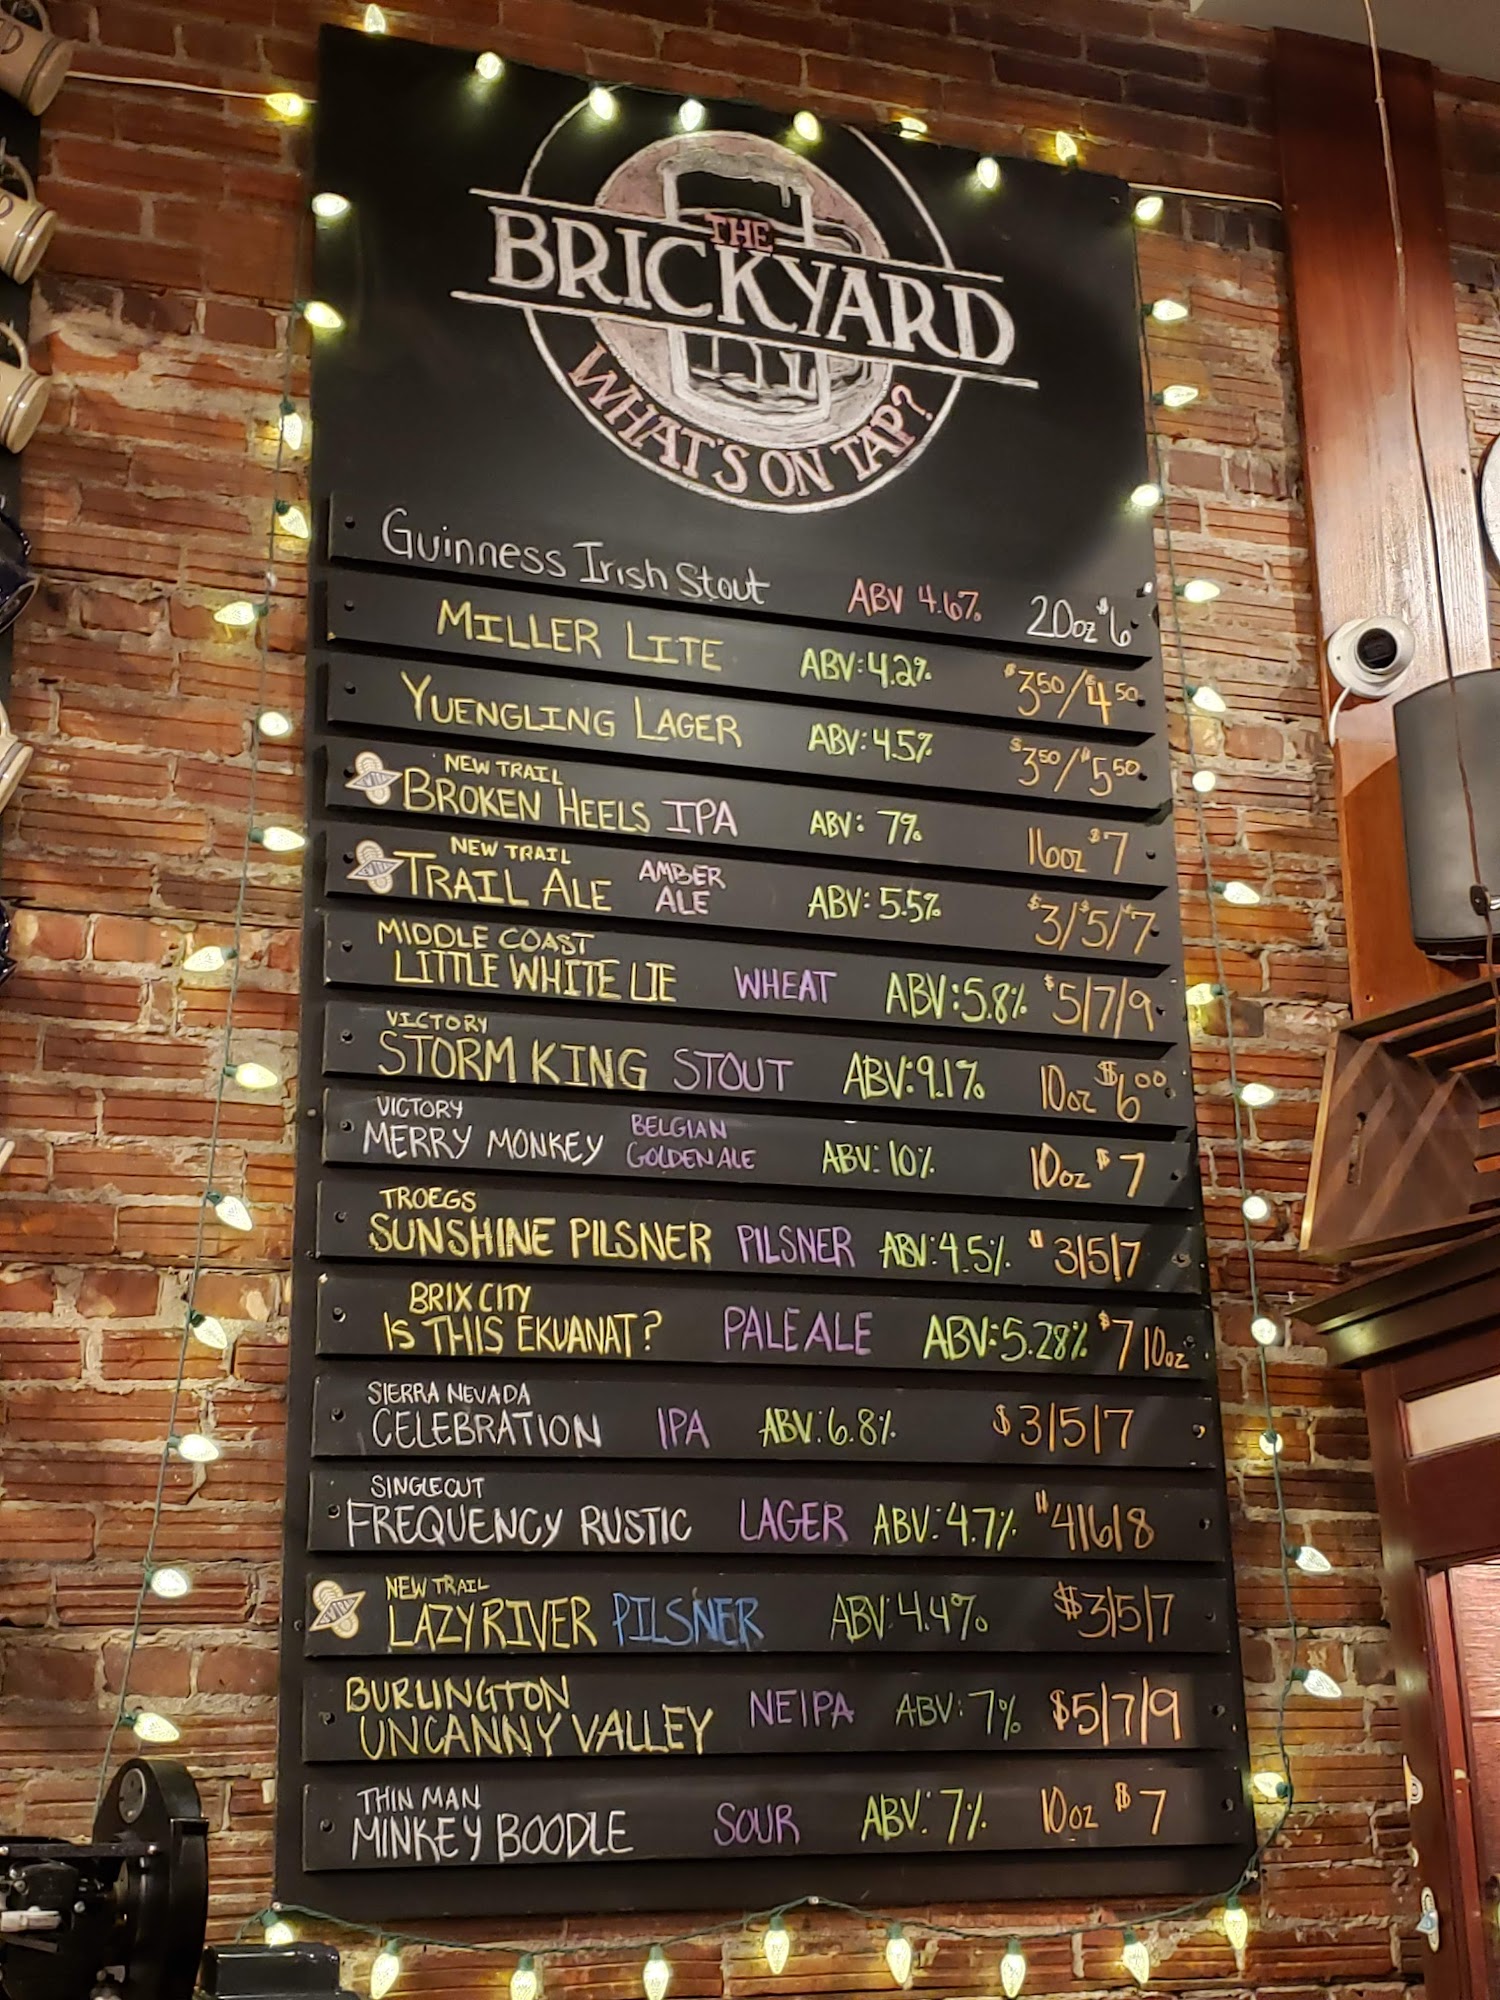 THE
BRICKYARD
WHAT'S ON TAP?
Guinness Irish Stout ABV 4.6% 20oz $6
MILLER LITE ABV: 4.2% $3.50/$4.50
YUENGLING LAGER ABV: 4.5% $3.50/$5.50
NEW TRAIL
BROKEN HEELS IPA ABV: 7% 16oz $7
NEW TRAIL
TRAIL ALE AMBER ALE ABV: 5.5% $3/$5/$7
MIDDLE COAST
LITTLE WHITE LIE WHEAT ABV: 5.8% $5/7/9
VICTORY
STORM KING STOUT ABV: 9.1% 10oz $6.00
VICTORY
MERRY MONKEY BELGIAN GOLDEN ALE ABV: 10% 10oz $7
TROEGS
SUNSHINE PILSNER PILSNER ABV: 4.5% $3/5/7
BRIX CITY
IS THIS EKUANAT? PALE ALE ABV: 5.28% $7 10oz
SIERRA NEVADA
CELEBRATION IPA ABV: 6.8% $3/5/7
SINGLECUT
FREQUENCY RUSTIC LAGER ABV: 4.7% "4/6/8
NEW TRAIL
LAZY RIVER PILSNER ABV: 4.4% $3/5/7
BURLINGTON
UNCANNY VALLEY NEIPA ABV: 7% $5/7/9
THIN MAN
MINKEY BOODLE SOUR ABV: 7% 10oz $7